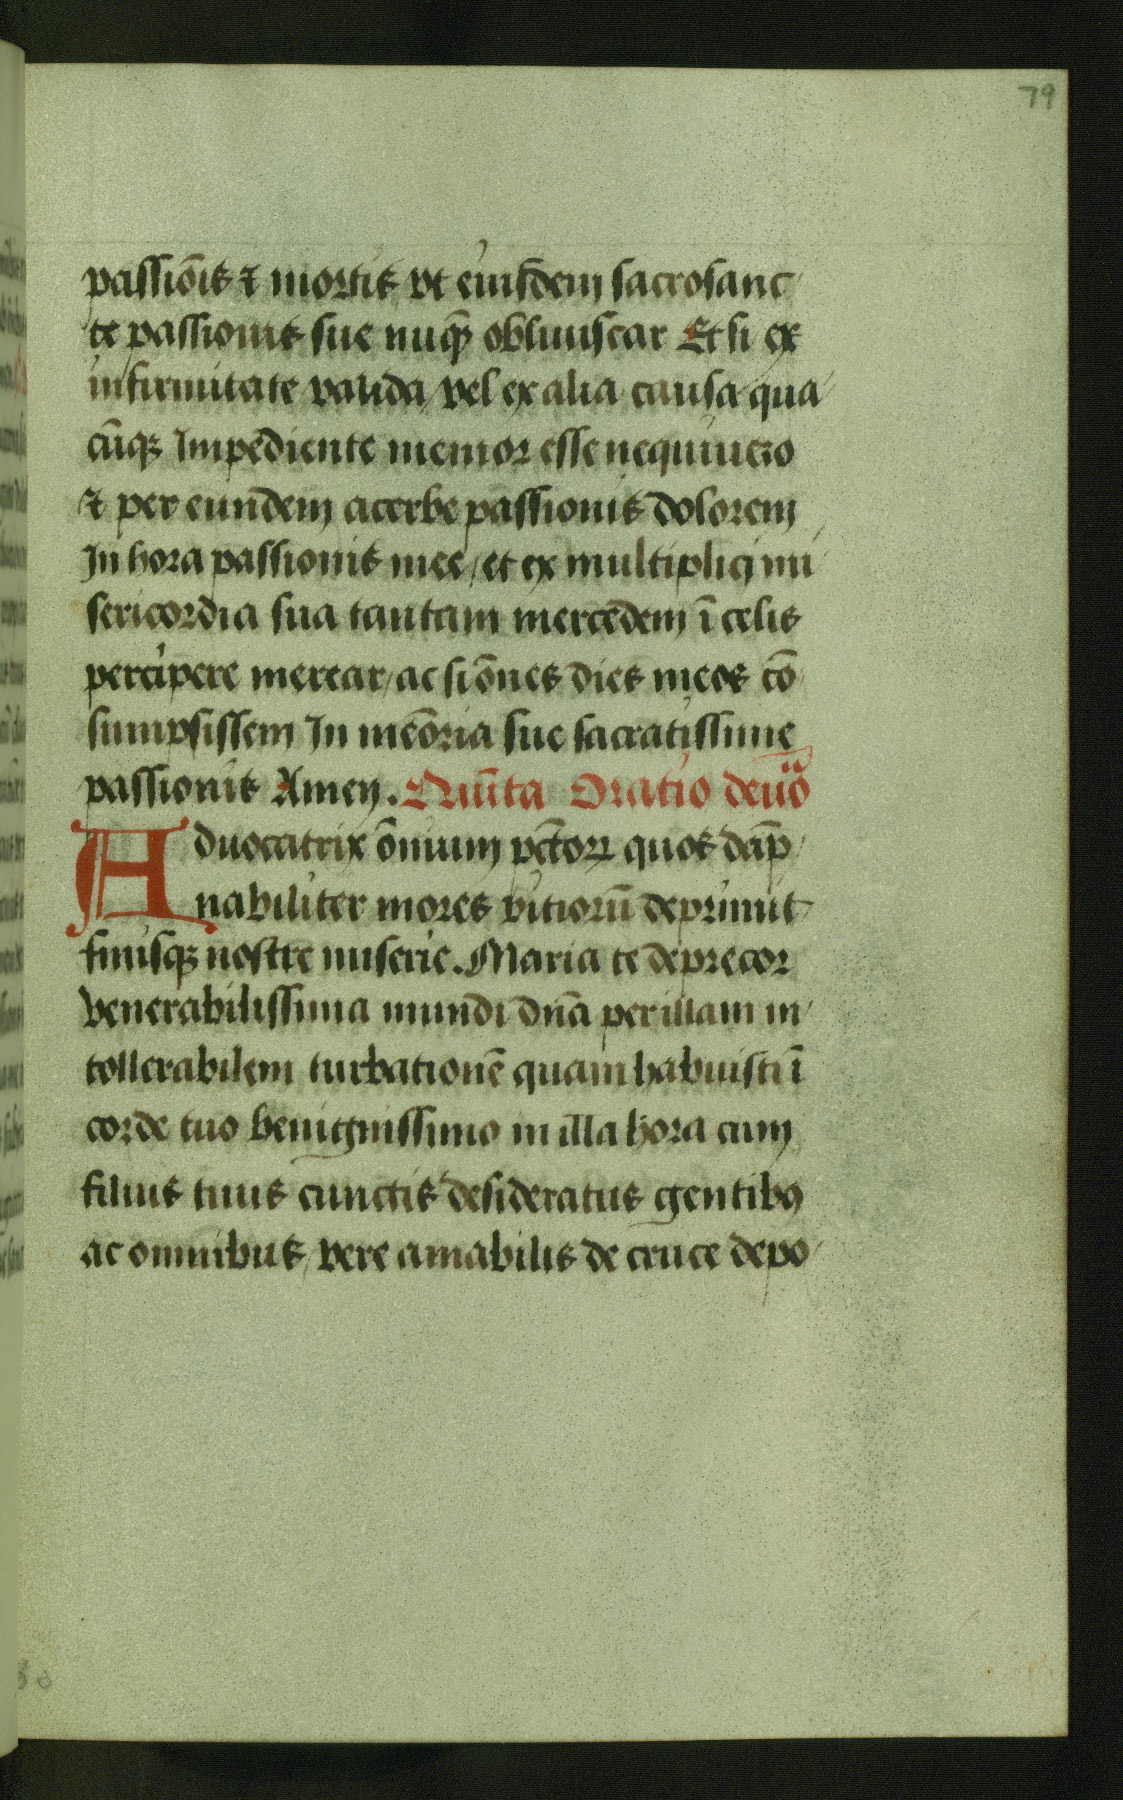 79
passiōis ⁊ mortis vt eiusdem sacrosanc
te passionis sue nūq̄ȝ obliuiscar Et si ex
infirmitate valida vel ex alia causa qua
cūqȝ Impediente memor esse nequiuero
⁊ per eundem acerbe passionis dolorem
In hora passionis mee / et ex multiplici mi
sericordia sua tantam mercedem ī celis
percipere merear / ac si ōnes dies meos cō
sumpsissem In mēoria sue sacratissime
passionis Amen. Quīta Oratio
Aduocatrix ōnium pctōꝝ quos dāp
nabiliter mores vitiorū deprimūt
finisqȝ nostre miserie. Maria te deprecor
venerabilissima mundi dn̄a per illam in
tollerabilem turbationē quam habuisti ī
corde tuo benignissimo in illa hora cum
filius tuus cunctis desideratus gentibꝰ
ac omnibus / vere amabilis de cruce depo